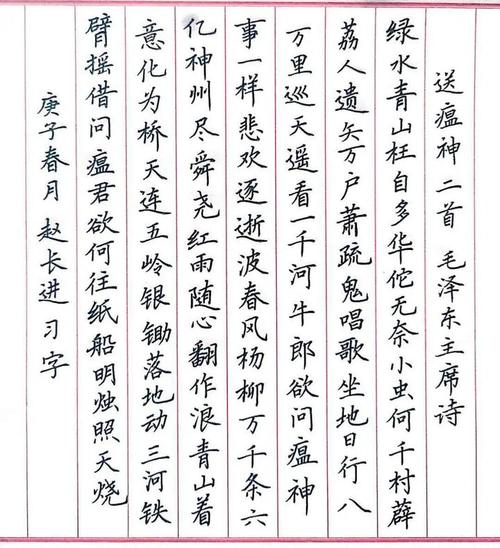 送瘟神二首 毛泽东主席诗
绿水青山枉自多华佗无奈小虫何千村薜
荔人遗矢万户萧疏鬼唱歌坐地日行八
万里巡天遥看一千河牛郎欲问瘟神
事一样悲欢逐逝波春风杨柳万千条六
亿神州尽舜尧红雨随心翻作浪青山着
意化为桥天连五岭银锄落地动三河铁
臂摇借问瘟君欲何往纸船明烛照天烧
庚子春月 赵长进 习字